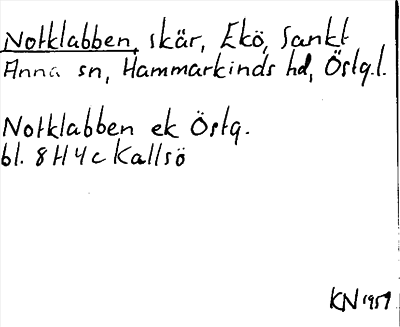 Notklabben, skär, Ekö, Sankt
Anna sn, Hammarkinds hd, Östg.l.
Notklabben ek Östg.
bl. 8H4c Kallsö
KN 1959